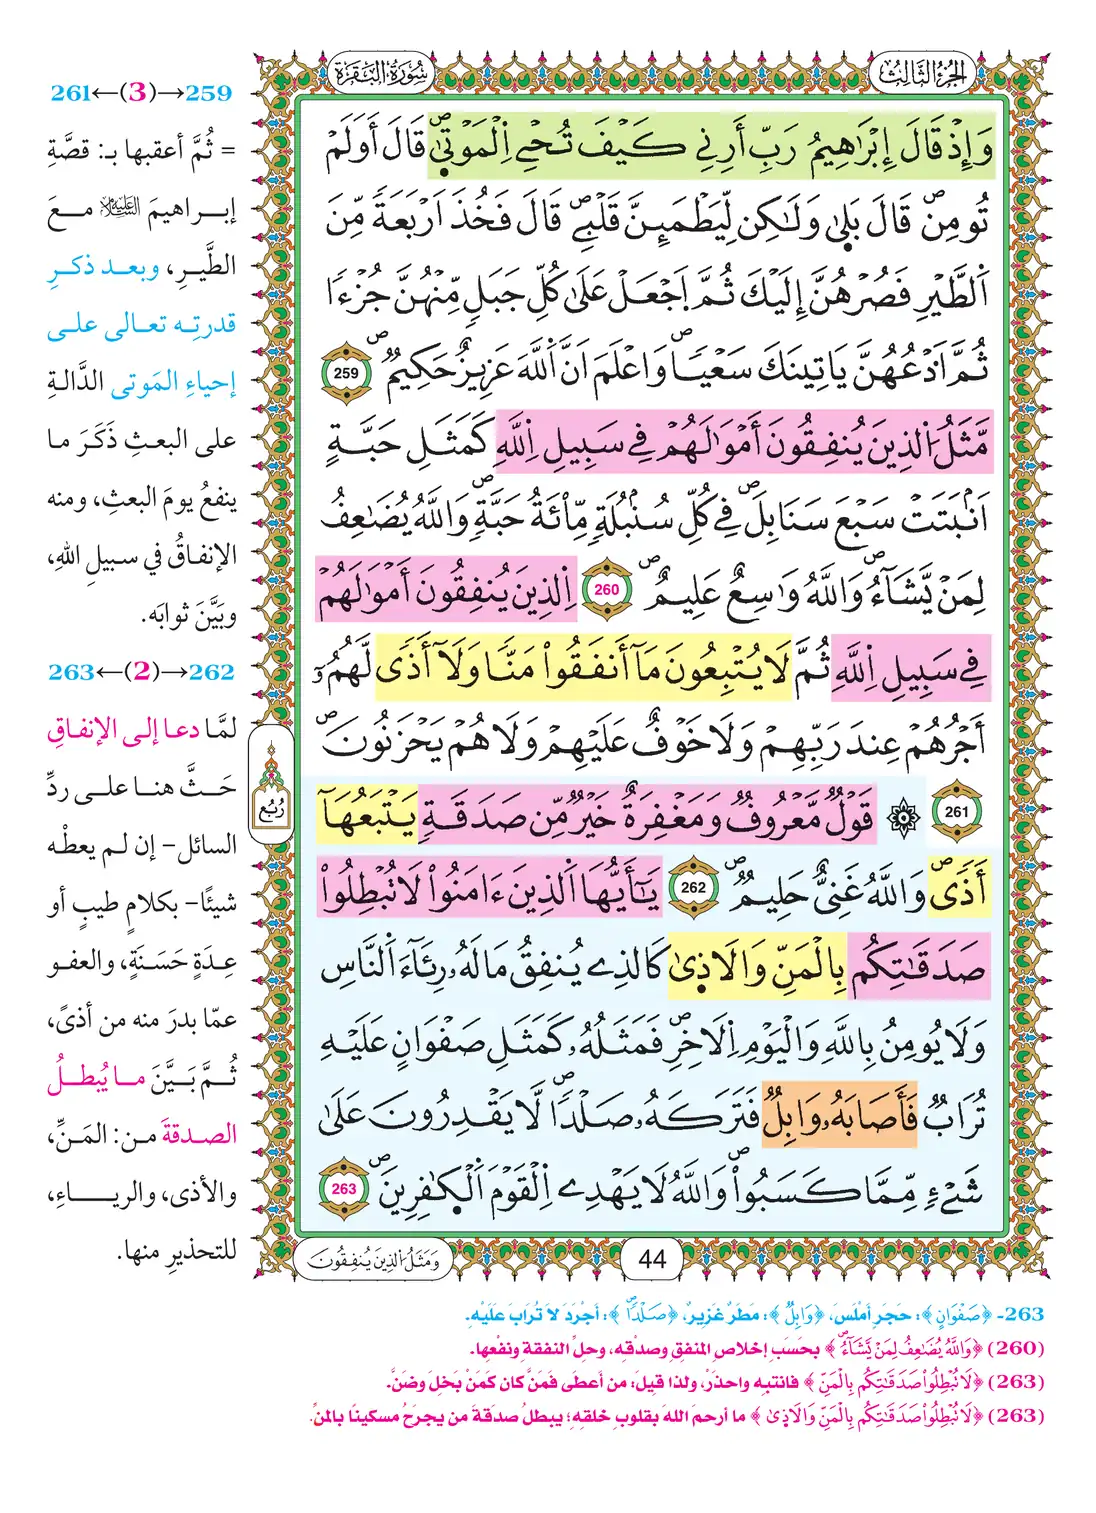 الجزء الثالث
سورة البقرة
وَإِذْ قَالَ إِبْرَاهِيمُ رَبِّ أَرِنِي كَيْفَ تُحْيِ اِلْمَوْتَىٰ قَالَ أَوَلَمْ
تُومِن قَالَ بَلَىٰ وَلَٰكِن لِّيَطْمَئِنَّ قَلْبِي قَالَ فَخُذَ اَرْبَعَةً مِّنَ
اَلطَّيْرِ فَصُرْهُنَّ إِلَيْكَ ثُمَّ اَجْعَلْ عَلَىٰ كُلِّ جَبَلٍ مِّنْهُنَّ جُزْءًا
ثُمَّ اَدْعُهُنَّ يَاتِينَكَ سَعْيًا وَاعْلَمَ اَنَّ اَللَّهَ عَزِيزٌ حَكِيمٌ 259
مَّثَلُ اُلذِينَ يُنفِقُونَ أَمْوَٰلَهُمْ فِي سَبِيلِ اِللَّهِ كَمَثَلِ حَبَّةٍ
اَنۢبَتَتْ سَبْعَ سَنَابِلَ فِي كُلِّ سُنۢبُلَةٍ مِّاْئَةُ حَبَّةٍ وَاللَّهُ يُضَٰعِفُ
لِمَنْ يَّشَآءُ وَاللَّهُ وَٰسِعٌ عَلِيمٌ 260 اِلذِينَ يُنفِقُونَ أَمْوَٰلَهُمْ
فِي سَبِيلِ اِللَّهِ ثُمَّ لَا يُتْبِعُونَ مَآ أَنفَقُواْ مَنًّا وَلَآ أَذًى لَّهُمُۥٓ
أَجْرُهُمْ عِندَ رَبِّهِمْ وَلَا خَوْفٌ عَلَيْهِمْ وَلَا هُمْ يَحْزَنُونَ
261 قَوْلٌ مَّعْرُوفٌ وَمَغْفِرَةٌ خَيْرٌ مِّن صَدَقَةٍ يَتْبَعُهَآ
أَذًى وَاللَّهُ غَنِيٌّ حَلِيمٌ 262 يَٰٓأَيُّهَا اَلذِينَ ءَامَنُواْ لَا تُبْطِلُواْ
صَدَقَٰتِكُم بِالْمَنِّ وَالَاذَىٰ كَالذِي يُنفِقُ مَالَهُۥ رِئَآءَ اَلنَّاسِ
وَلَا يُومِنُ بِاللَّهِ وَالْيَوْمِ اِلَاخِرِ فَمَثَلُهُۥ كَمَثَلِ صَفْوَانٍ عَلَيْهِ
تُرَابٌ فَأَصَابَهُۥ وَابِلٌ فَتَرَكَهُۥ صَلْدًا لَّا يَقْدِرُونَ عَلَىٰ
شَيْءٍ مِّمَّا كَسَبُواْ وَاللَّهُ لَا يَهْدِي اِلْقَوْمَ اَلْكَٰفِرِينَ 263
رُبُع
259→(3)←261
= ثُمَّ أعقبها بـ: قصَّةِ
إبـراهيمَ عليه السلام مـعَ
الطَّيـرِ، وبعـد ذكـرِ
قدرتِـه تعـالى علـى
إحياءِ المَوتى الدَّالةِ
على البعثِ ذَكَرَ مـا
ينفعُ يومَ البعثِ، ومنه
الإنفـاقُ في سـبيلِ اللهِ،
وبَيَّنَ ثوابَه.
262→(2)←263
لمَّـا دعـا إلـى الإنفـاقِ
حَـثَّ هنـا علـى ردِّ
السائل- إن لـم يعطْـه
شيئًا- بكلامٍ طيبٍ أو
عِـدَةٍ حَسَنَةٍ، والعفـو
عمّا بدرَ منه من أذىً،
ثُـمَّ بَـيَّنَ مـا يُبطـلُ
الصـدقةَ مـن: المَـنِّ،
والأذى، والريـاءِ،
للتحذيرِ منها.
وَمَثَلُ اُلذِينَ يُنفِقُونَ
44
263- ﴿صَفْوَانٍ﴾: حَجَرٍ أَمْلَسَ، ﴿وَابِلٌ﴾: مَطَرٌ غَزِيرٌ، ﴿صَلْدًا﴾: أَجْرَدَ لَا تُرَابَ عَلَيْهِ.
(260) ﴿وَاللَّهُ يُضَٰعِفُ لِمَنْ يَّشَآءُ﴾ بحَسَبِ إخلاصِ المنفقِ وصدْقِه، وحلِّ النفقةِ ونفْعِها.
(263) ﴿لَا تُبْطِلُواْ صَدَقَٰتِكُم بِالْمَنِّ﴾ فانتبه واحذرْ، ولذا قيلَ: من أعطى فَمَنَّ كان كمَنْ بخل وضَنَّ.
(263) ﴿لَا تُبْطِلُواْ صَدَقَٰتِكُم بِالْمَنِّ وَالَاذَىٰ﴾ ما أرحمَ اللهَ بقلوبِ خلقِه؛ يبطلُ صدقةَ من يجرحُ مسكينًا بالمنِّ.